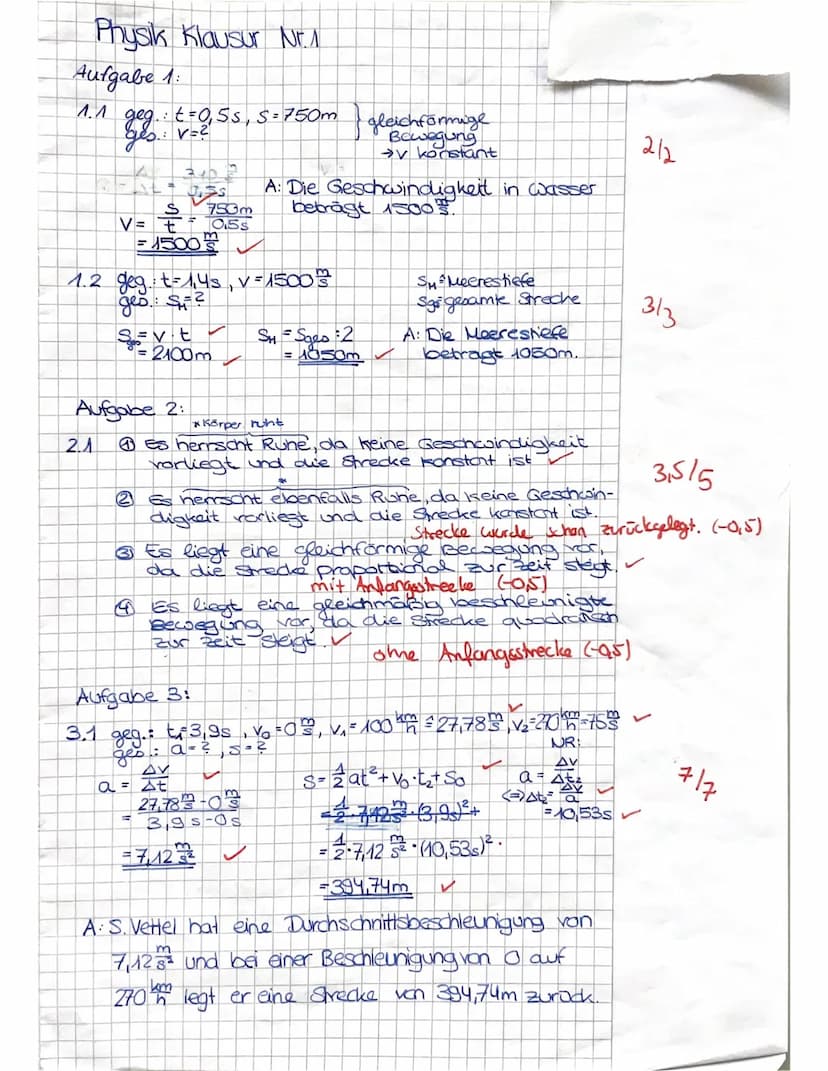 Physik Klausur Nr.1
Aufgabe 1:
1.1 geg.: t=0,5s, s=750m } gleichförmige
ges.: v=? Bewegung
→v konstant
2/2
A: Die Geschwindigkeit in wasser
beträgt 1500 m/s.
v = s/t = 750m/0,5s
= 1500 m/s ✓
1.2 geg.: t=1,4s, v=1500 m/s
ges.: SM=?
SM ≙ Meerestiefe
Sges ≙ gesamte Strecke
3/3
Sges = v·t ✓
= 2100m ✓
SM = Sges :2
= 1050m ✓
A: Die Meerestiefe
beträgt 1050m.
Aufgabe 2:
*Körper ruht
2.1 ① Es herrscht Ruhe*, da keine Geschwindigkeit
vorliegt und die Strecke konstant ist ✓
3,5/5
② Es herrscht ebenfalls Ruhe*, da keine Geschwin-
digkeit vorliegt und die Strecke konstant ist.
Strecke wurde schon zurückgelegt. (-0,5)
③ Es liegt eine gleichförmige Bewegung vor,
da die Strecke proportional zur Zeit steigt. ✓
mit Anfangsstrecke (-0,5)
④ Es liegt eine gleichmäßig beschleunigte
Bewegung vor, da die Strecke quadratisch
zur Zeit steigt. ✓
ohne Anfangsstrecke (-0,5)
Aufgabe 3:
3.1 geg.: t₁=3,9s, v₀=0 m/s, v₁=100 km/h ≙ 27,78 m/s, v₂=270 km/h=75 m/s ✓
ges.: a=?, s=?
7/7
a = Δv/Δt ✓
= (27,78 m/s - 0 m/s)/(3,9s-0s)
= 7,12 m/s² ✓
s = 1/2 at² + v₀·t₂ + s₀ ✓
= 1/2 · 7,12 m/s² · (3,9s)² +
= 1/2 · 7,12 m/s² · (10,53s)² ·
= 394,74m ✓
NR:
a = Δv/Δt₂
⇔ Δt₂ = Δv/a ✓
= 10,53s ✓
A: S. Vettel hat eine Durchschnittsbeschleunigung von
7,12 m/s² und bei einer Beschleunigung von 0 auf
270 km/h legt er eine Strecke von 394,74m zurück.